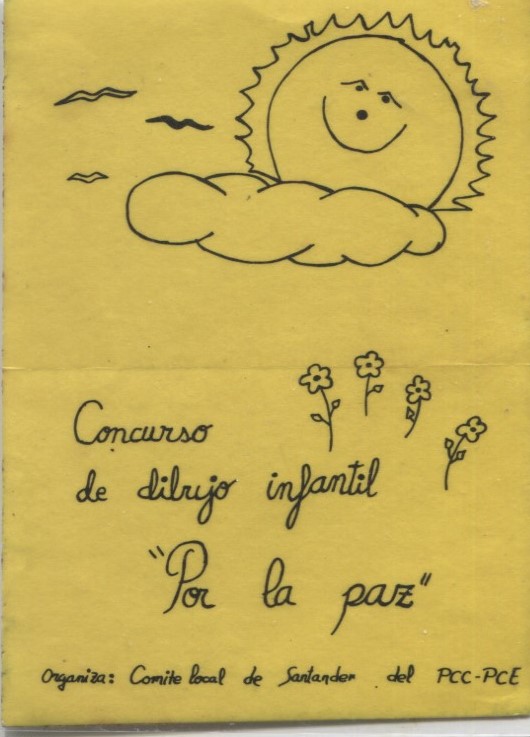 Concurso
de dibujo infantil
"Por la paz"
Organiza: Comite local de Santander del PCC-PCE